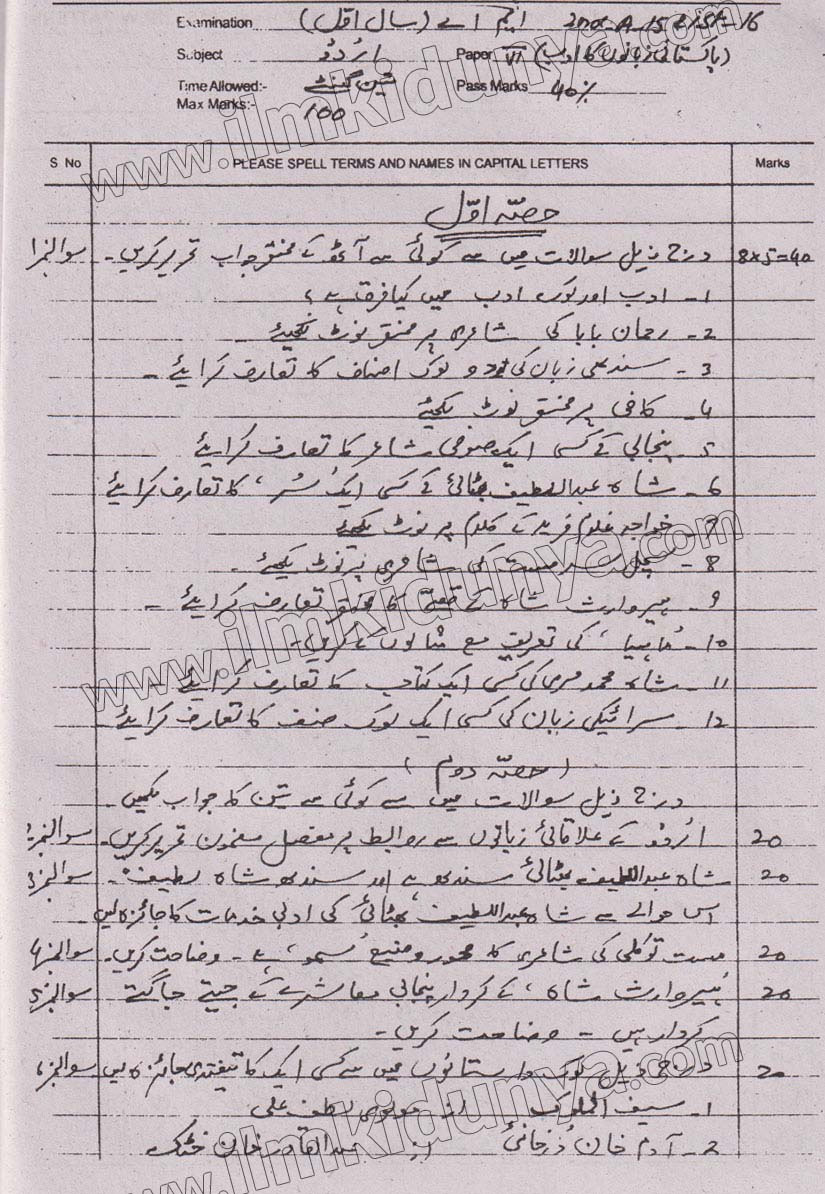 Examination ایم اے (سال اوّل) 2nd-A-15 2/SA-16
Subject اُردُو Paper VI (پاکستانی زبانوں کا ادب)
Time Allowed:- تین گھنٹے Pass Marks 40%
Max Marks:- 100
S No PLEASE SPELL TERMS AND NAMES IN CAPITAL LETTERS Marks
حصّہ اوّل
سوال نمبر1 درج ذیل سوالات میں سے کوئی سے آٹھ کے مختصر جواب تحریر کریں۔ 8x5=40
1- ادب اور لوک ادب میں کیا فرق ہے؟
2- رحمان بابا کی شاعری پر مختصر نوٹ لکھیئے
3- سندھی زبان کی دو لوک اصناف کا تعارف کرایئے۔
4- کافی پر مختصر نوٹ لکھیئے
5- پنجابی کے کسی ایک صوفی شاعر کا تعارف کرایئے
6- شاہ عبداللطیف بھٹائی کے کسی ایک 'سُر' کا تعارف کرایئے
7- خواجہ غلام فرید کے کلام پر نوٹ لکھیئے
8- سچل سرمست کی شاعری پر نوٹ لکھیئے۔
9- ہیر وارث شاہ کے قصّے کا مختصر تعارف کرایئے۔
10- 'ماہیا' کی تعریف مع مثالوں کے کریں۔
11- شاہ محمد مری کی کسی ایک کتاب کا تعارف کرایئے
12- سرائیکی زبان کی کسی ایک لوک صنف کا تعارف کرایئے
(حصّہ دوم)
درج ذیل سوالات میں سے کوئی سے تین کا جواب لکھیں۔
سوال نمبر2 اُردُو کے علاقائی زبانوں سے روابط پر مفصل مضمون تحریر کریں۔ 20
سوال نمبر3 شاہ عبداللطیف بھٹائی سندھ ہے اور سندھ شاہ لطیف۔ 20
اس حوالے سے شاہ عبداللطیف بھٹائی کی ادبی خدمات کا جائزہ لیں
سوال نمبر4 مست توکلی کی شاعری کا محور و منبع 'سمو' ہے۔ وضاحت کریں۔ 20
سوال نمبر5 'ہیر وارث شاہ' کے کردار پنجابی معاشرے کے جیتے جاگتے 20
کردار ہیں۔ وضاحت کریں۔
سوال نمبر درج ذیل لوک داستانوں میں سے کسی ایک کا تنقیدی جائزہ لیں 20
1- سیف الملوک از مولوی لطف علی
2- آدم خان دُرخانئی از عبدالقادر خان خٹک
www.ilmkidunya.com
www.ilmkidunya.com
www.ilmkidunya.com